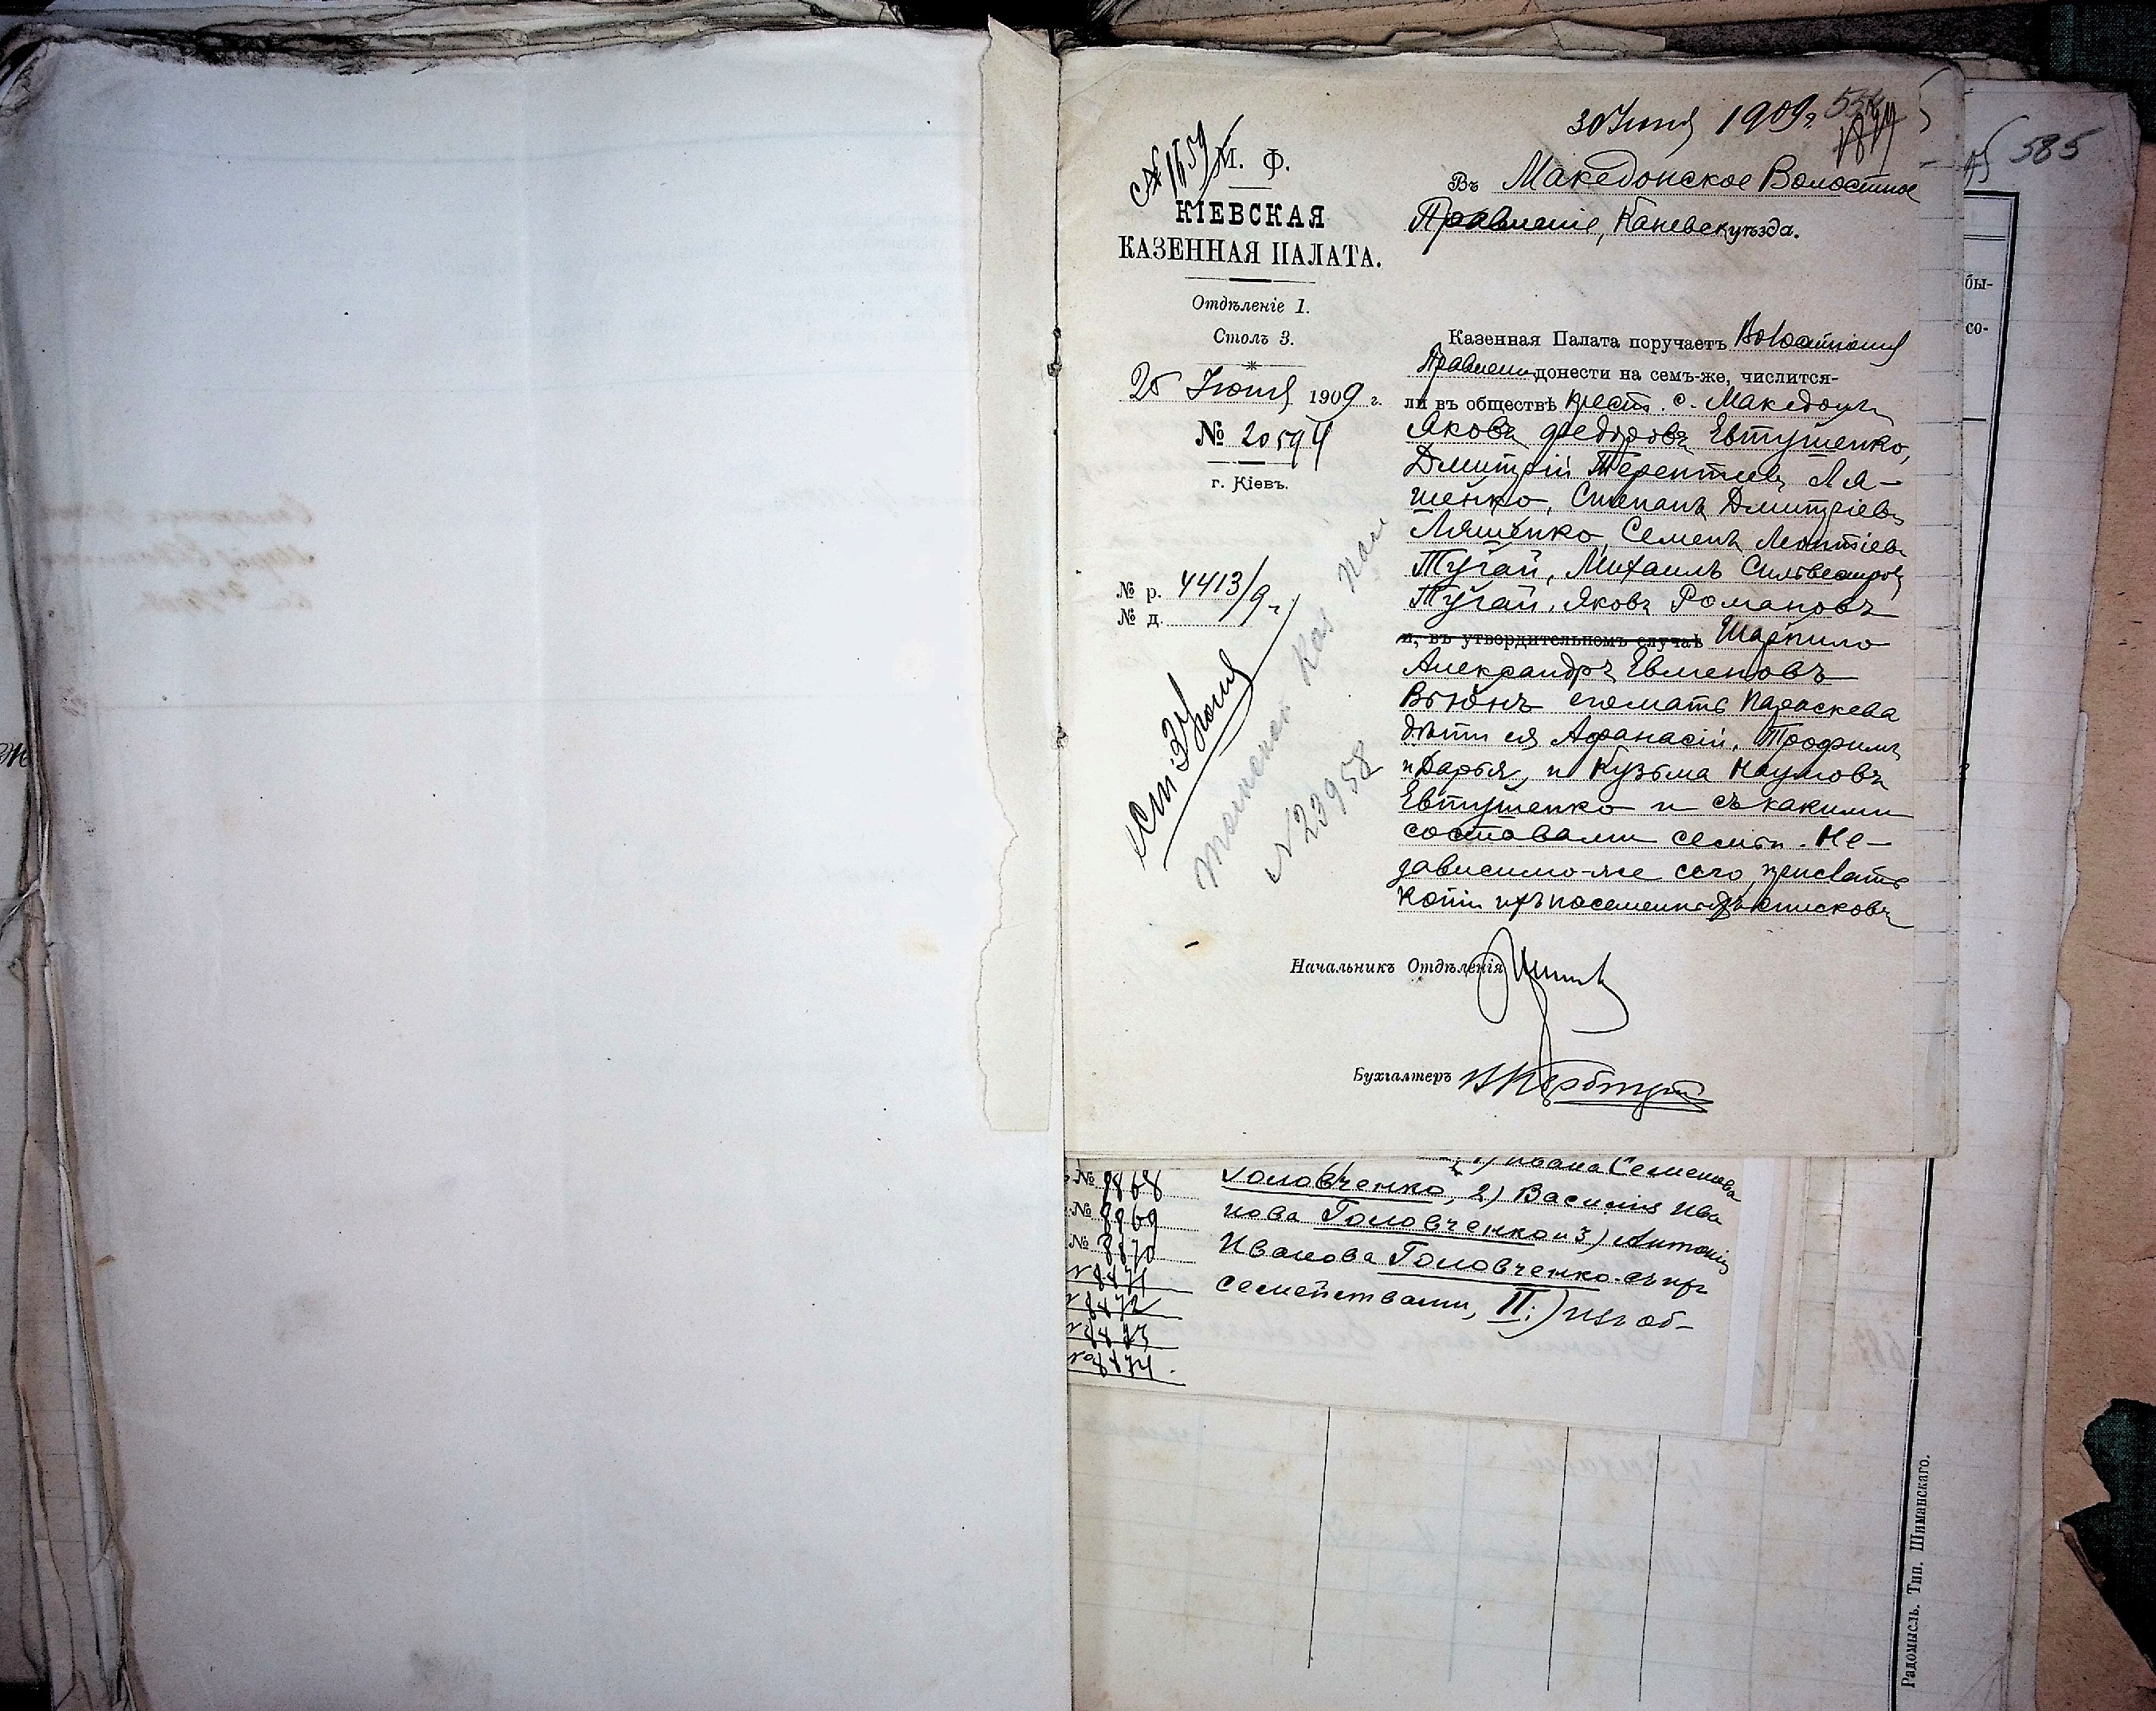 30 Іюня 1909 г.
585
№ 1659
М. Ф.
КІЕВСКАЯ
КАЗЕННАЯ ПАЛАТА.
Отдѣленіе 1.
Столъ 3.
25 Іюня 1909 г.
№ 20594
г. Кіевъ.
№ р. 4413/9 г.
№ д.
№ 23958
Въ Македонское Волостное
Правленіе, Каневск. уѣзда.
Казенная Палата поручаетъ Волостному
Правленію донести на семъ-же, числится-
ли въ обществѣ крест. с. Македоны
Яковъ Федоровъ Евтушенко,
Дмитрій Терентіевъ Ля-
шенко, Степанъ Дмитріевъ
Ляшенко, Семенъ Леонтіевъ
Тугай, Михаилъ Сильвестровъ
Тугай, Яковъ Романовъ
и, въ утвердительномъ случаѣ Шарпило
Александръ Евменовъ
Вьюнъ, его мать Параскева
дѣти ея Афанасій, Трофимъ
и Дарья, и Кузьма Наумовъ
Евтушенко и съ какими
составами семьи. Не-
зависимо-же сего, прислать
копіи ихъ посемейныхъ списковъ
Начальникъ Отдѣленія
Бухгалтеръ
бы-
со-
Ивана Семенова
№ 8868 Головченко, 2) Василія Ива
№ 8869 нова Головченко и 3) Антонія
№ 8870 Иванова Головченко съ ихъ
№ 8871 семействами, II:) изъ об-
№ 8872
№ 8873
№ 8874.
Радомысль. Тип. Шиманскаго.